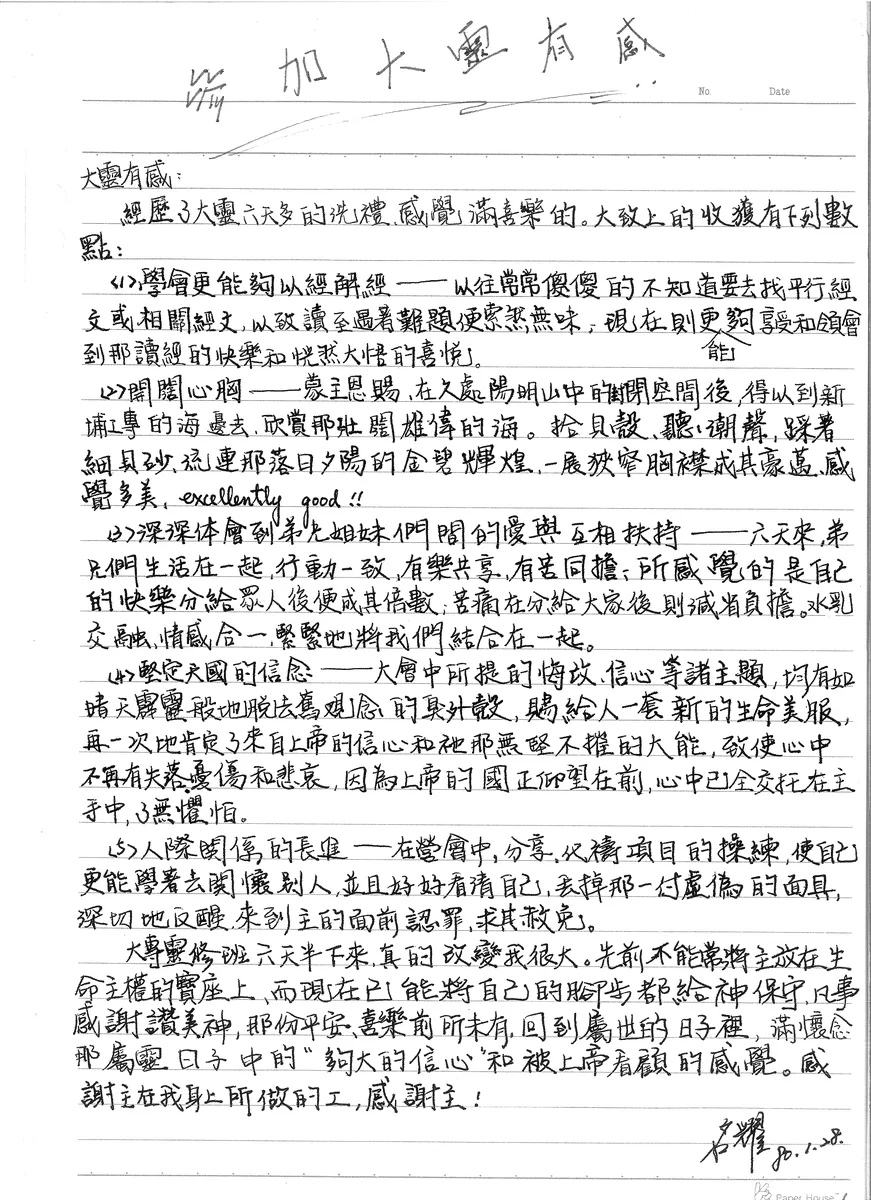 參加大靈有感
No. Date
大靈有感:
經歷了大靈六天多的洗禮,感覺滿喜樂的。大致上的收獲有下列數
點:
(1)學會更能夠以經解經——以往常常傻傻的不知道要去找平行經
文或相關經文,以致讀至過著難題便索然無味;現在則更能夠享受和領會
到那讀經的快樂和恍然大悟的喜悅。
(2)開闊心胸——蒙主恩賜、在久處陽明山中的封閉空間後,得以到新
埔工專的海邊去、欣賞那壯闊雄偉的海。拾貝殼、聽潮聲,踩著
細貝砂、流連那落日夕陽的金碧輝煌,一展狹窄胸襟成其豪邁、感
覺多美, excellently good!!
(3)深深体會到弟兄姐妹們間的愛與互相扶持——六天來,弟
兄們生活在一起,行動一致,有樂共享,有苦同擔;所感覺的是自己
的快樂分給眾人後便成其倍數;苦痛在分給大家後則減省負擔。水乳
交融,情感合一,緊緊地將我們結合在一起。
(4)堅定天國的信念——大會中所提的悔改、信心等諸主題,均有如
晴天霹靂般地脫去舊觀念的臭外殼,賜給人一套新的生命美服,
再一次地肯定了來自上帝的信心和祂那無堅不摧的大能,致使心中
不再有失落、憂傷和悲哀,因為上帝的國正仰望在前,心中已全交托在主
手中,了無懼怕。
(5)人際關係的長進——在營會中,分享、代禱項目的操練,使自己
更能學著去關懷別人,並且好好看清自己,丟掉那一付虛偽的面具,
深切地反醒、來到主的面前認罪,求其赦免。
大專靈修班六天半下來,真的改變我很大。先前不能常將主放在生
命主權的寶座上、而現在已能將自己的腳步都給神保守,凡事
感謝讚美神,那份平安、喜樂前所未有,回到屬世的日子裡,滿懷念
那屬靈日子中的"夠大的信心"和被上帝看顧的感覺。感
謝主在我身上所做的工,感謝主!
名耀 80.1.28.
Paper House